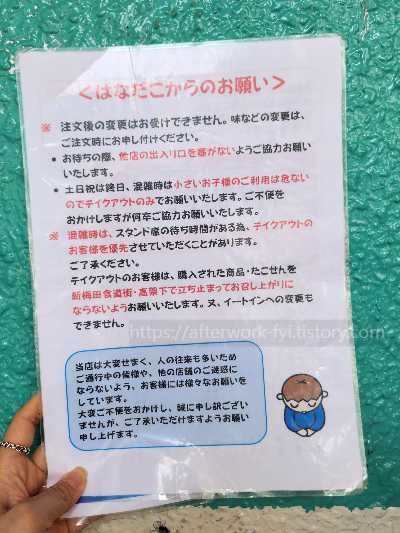 ＜はなだこからのお願い＞
※ 注文後の変更はお受けできません。味などの変更は、
ご注文時にお申し付けください。
● お待ちの際、他店の出入り口を塞がないようご協力お願い
いたします。
● 土日祝は終日、混雑時は小さいお子様のご利用は危ない
のでテイクアウトのみでお願いいたします。ご不便を
おかけしますが何卒ご協力お願いいたします。
※ 混雑時は、スタンド席の待ち時間がある為、テイクアウトの
お客様を優先させていただくことがあります。
ご了承ください。
テイクアウトのお客様は、購入された商品・たこせんを
新梅田食道街・高架下で立ち止まってお召し上がりに
ならないようお願いいたします。又、イートインへの変更も
できません。
https://afterwork-fyi.tistory.com
当店は大変せまく、人の往来も多いため
ご通行中の皆様や、他の店舗のご迷惑に
ならないよう、お客様には様々なお願いを
しています。
大変ご不便をおかけし、誠に申し訳ござい
ませんが、ご了承いただけますようお願い
申し上げます。